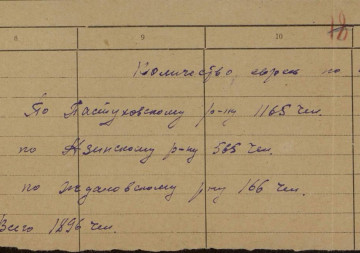 18
8 9 10
Количество евреев по
По Пастуховскому р-ну 1165 чел.
по Азинскому р-ну 565 чел.
по Ждановскому р-ну 166 чел.
Всего 1896 чел.